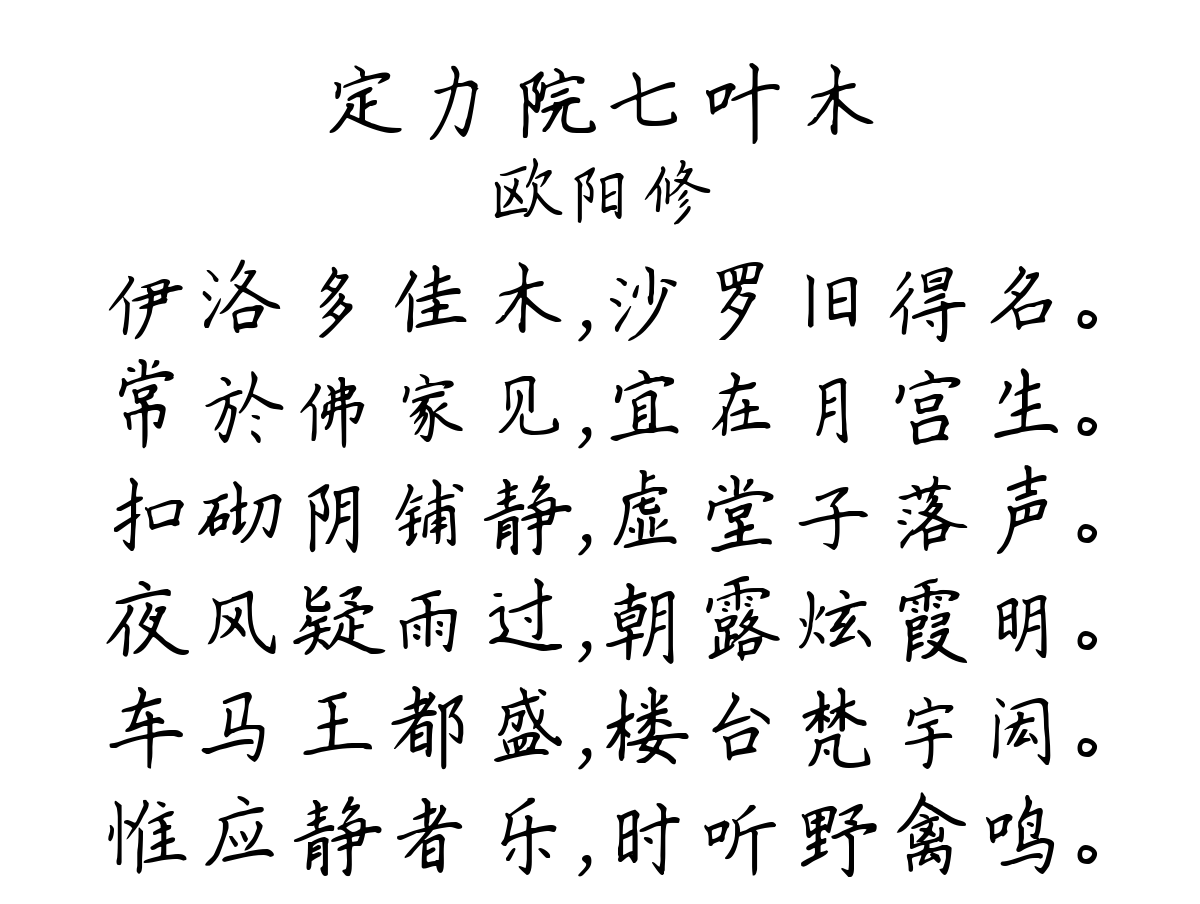 定力院七叶木
欧阳修
伊洛多佳木,沙罗旧得名。
常於佛家见,宜在月宫生。
扣砌阴铺静,虚堂子落声。
夜风疑雨过,朝露炫霞明。
车马王都盛,楼台梵宇闳。
惟应静者乐,时听野禽鸣。